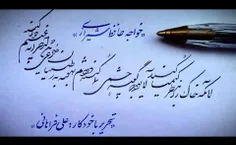 «خواجه حافظ شیرازی»
آنانکه خاک را بنظر کیمیا کنند آیا بود که گوشه چشمی بما کنند
دردم نهفته به ز طبیبان مدعی
باشد که از خزانه غیبم دوا کنند
«تحریر با خودکار: علی فراهانی»